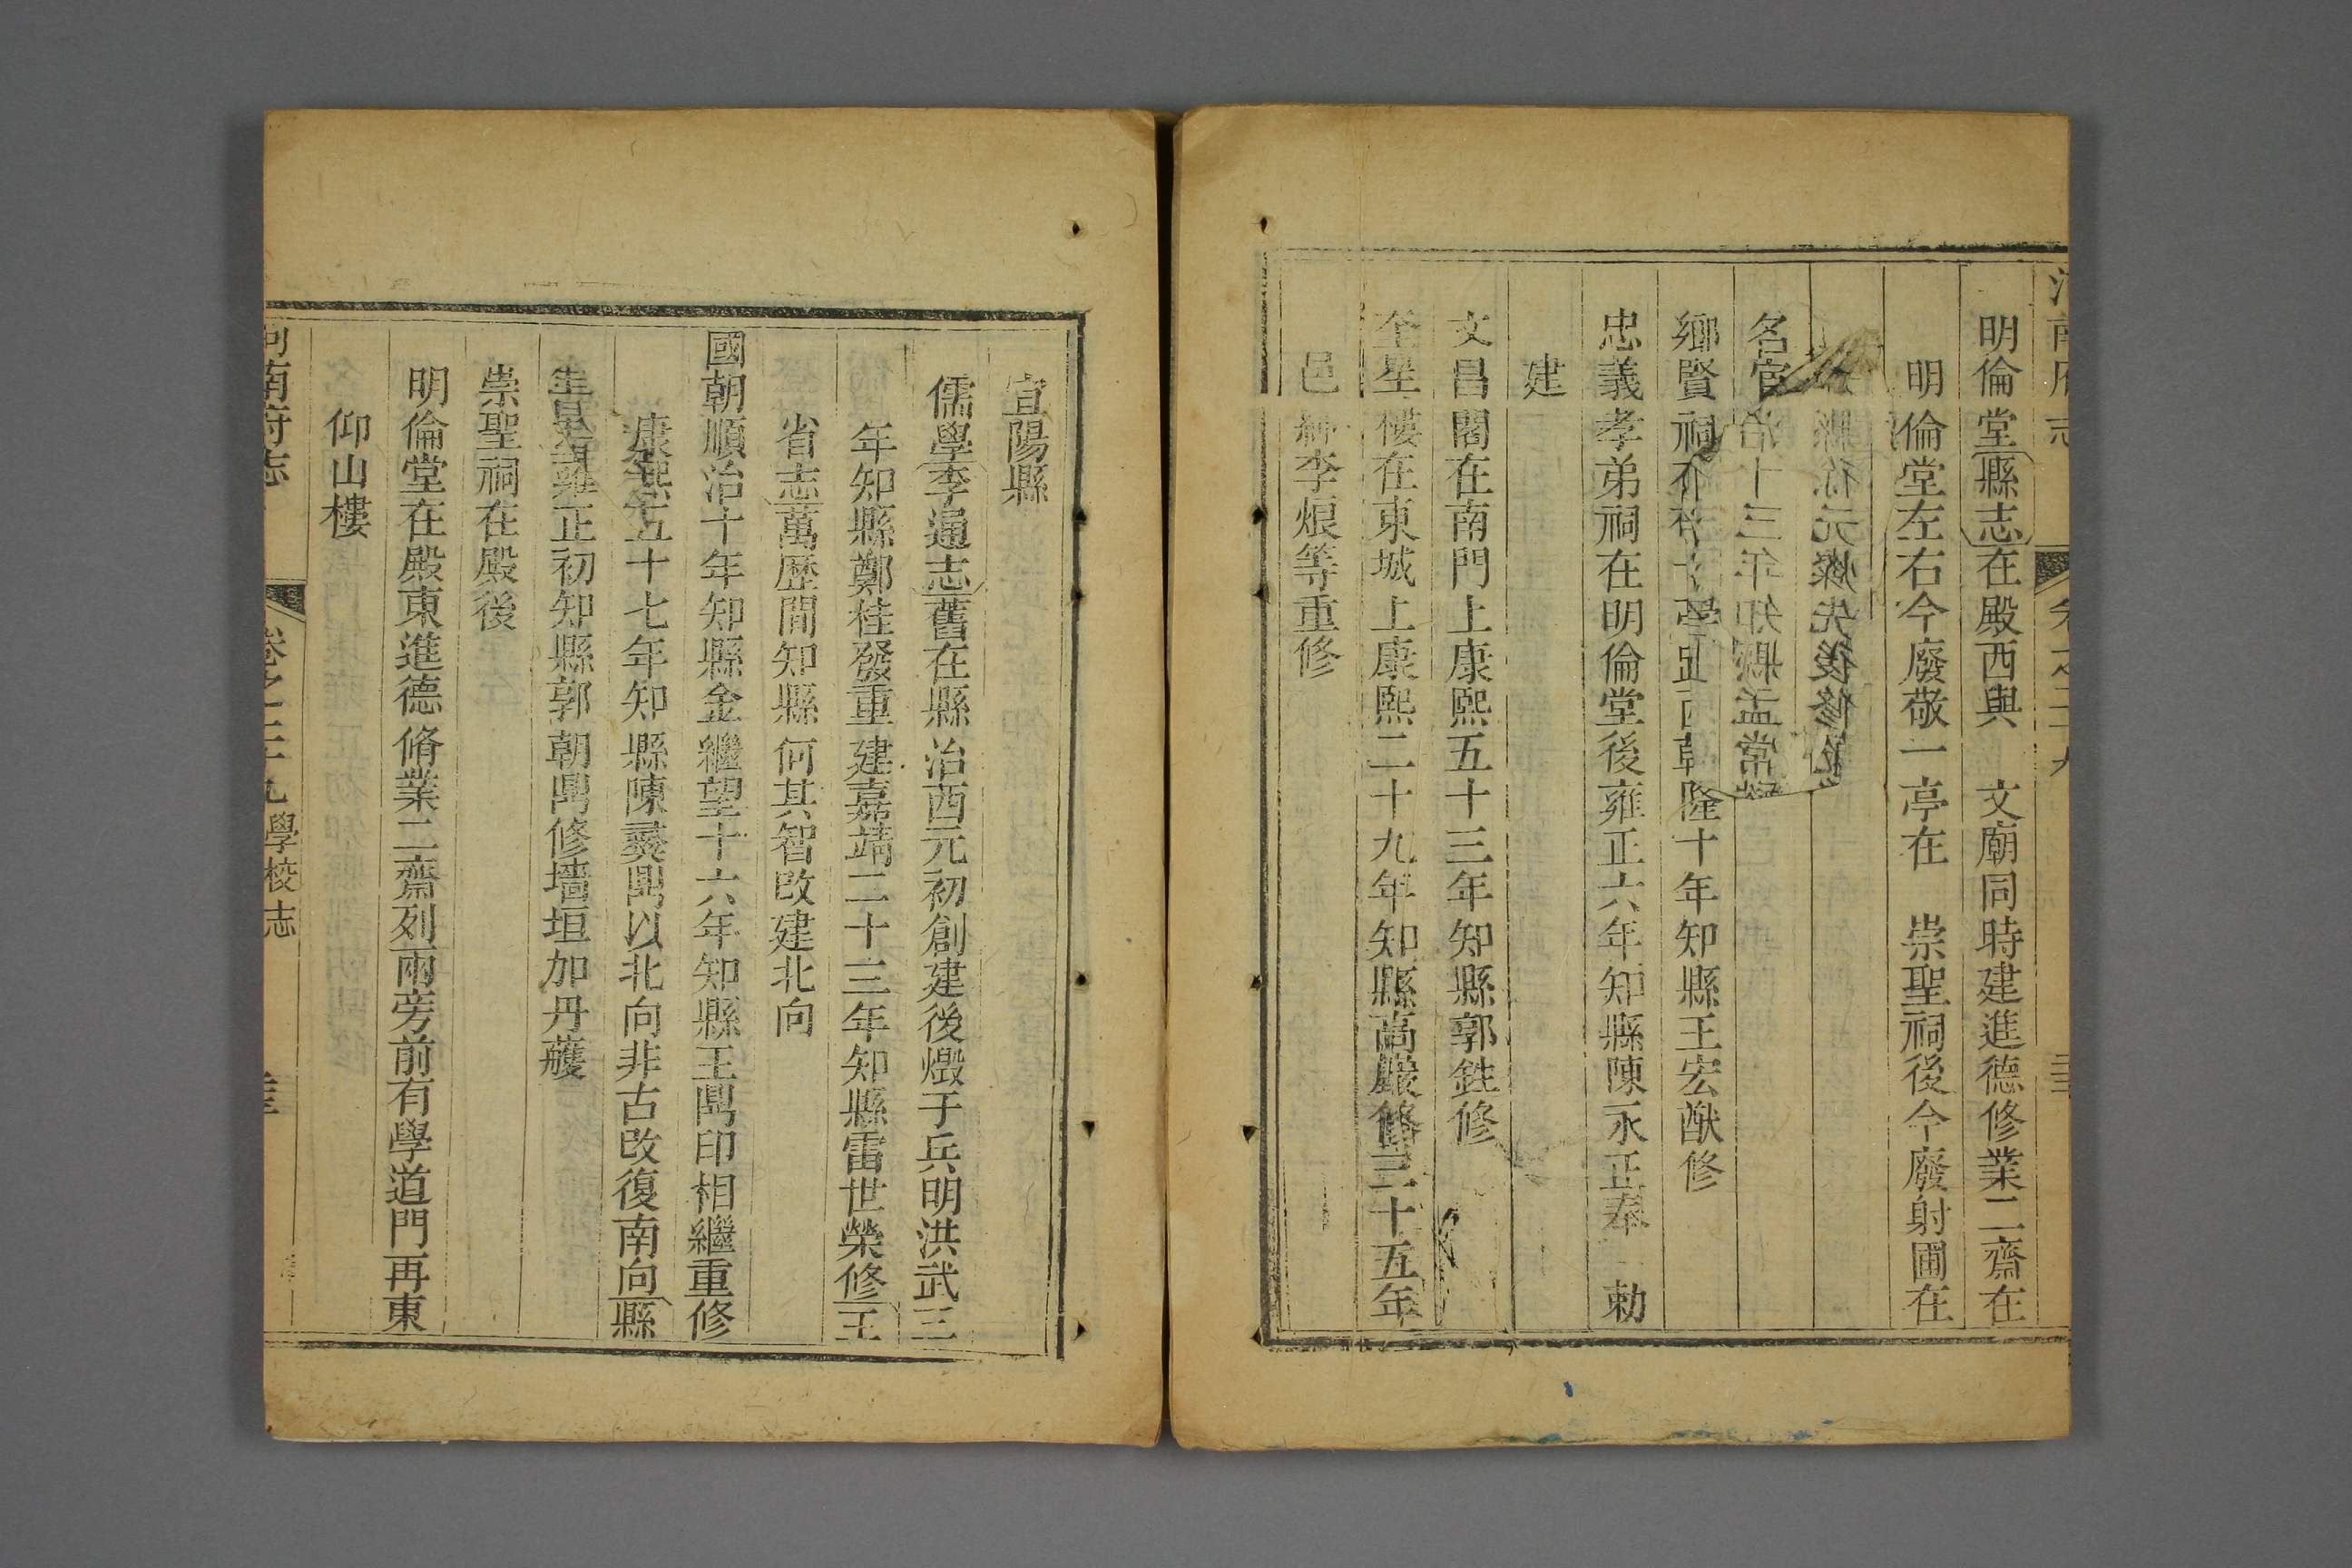 明倫堂縣志在殿西與　文廟同時建進德修業二齋在
明倫堂左右今廢敬一亭在　崇聖祠後今廢射圃在
縣徐元燦先後修
名宦
治十三年知縣孟常
鄉賢祠在 隆十年知縣王宏猷修
忠義孝弟祠在明倫堂後雍正六年知縣陳永正奉　勅
建
文昌閣在南門上康熙五十三年知縣郭銈修
奎星樓在東城上康熙二十九年知縣高巖修三十五年
邑 李烺等重修
宜陽縣
儒學李通志舊在縣治西元初創建後燬于兵明洪武三
年知縣鄭桂發重建嘉靖二十三年知縣雷世榮修王
省志萬歷間知縣何其智改建北向
國朝順治十年知縣金繼望十六年知縣王鼎印相繼重修
康熙五十七年知縣陳彛鼎以北向非古改復南向縣
雍正初知縣郭朝鼎修墻垣加丹雘
崇聖祠在殿後
明倫堂在殿東進德脩業二齋列兩旁前有學道門再東
仰山樓
河南府志
卷之二十九學校志